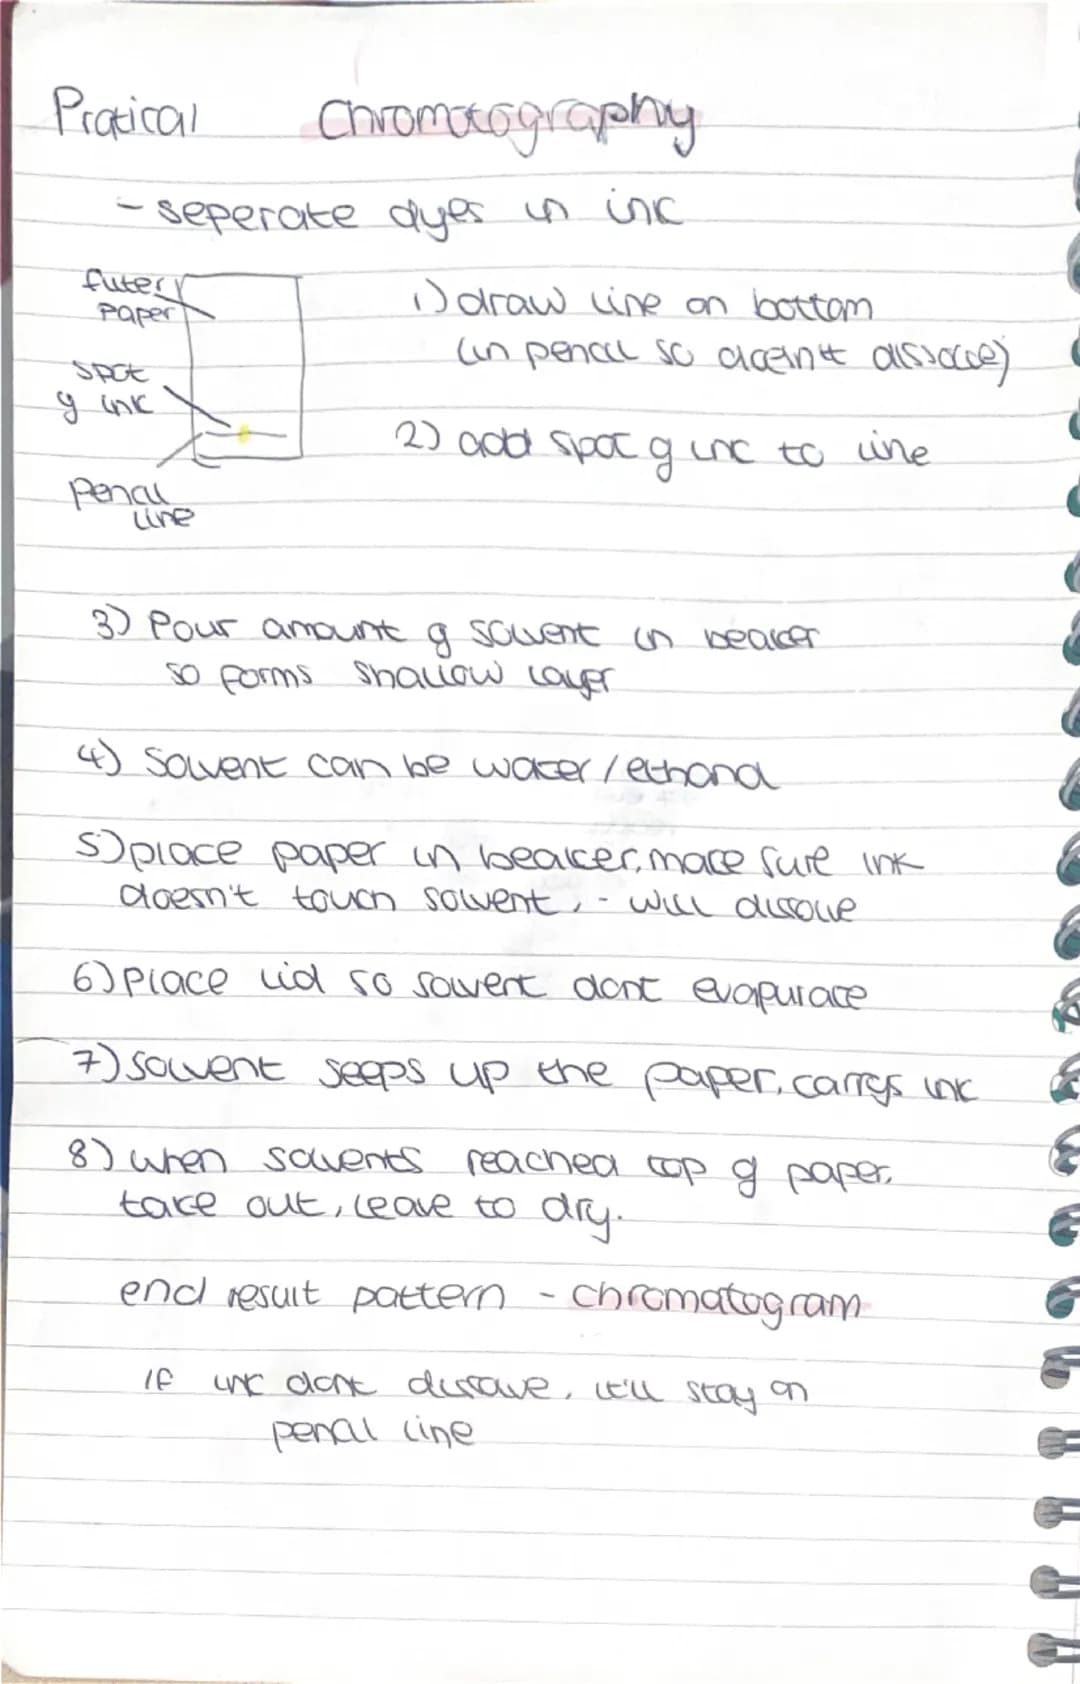 Pratical Chromotography
- seperate dyes in inc
filter
paper
spot
of ink
pencil
line
1) draw line on bottom
(in pencil so doesn't dissolve)
2) add spot of inc to line
3) Pour amount of solvent in beaker
so forms shallow layer
4) Solvent can be water / ethanol
5) place paper in beaker, make sure ink
doesn't touch solvent, - will dissolve
6) place lid so solvent dont evapurate
7) solvent seeps up the paper, carrys inc
8) when solvents reached top of paper,
take out, leave to dry.
end result pattern - chromatogram
if inc dont dissolve, it'll stay on
pencil line